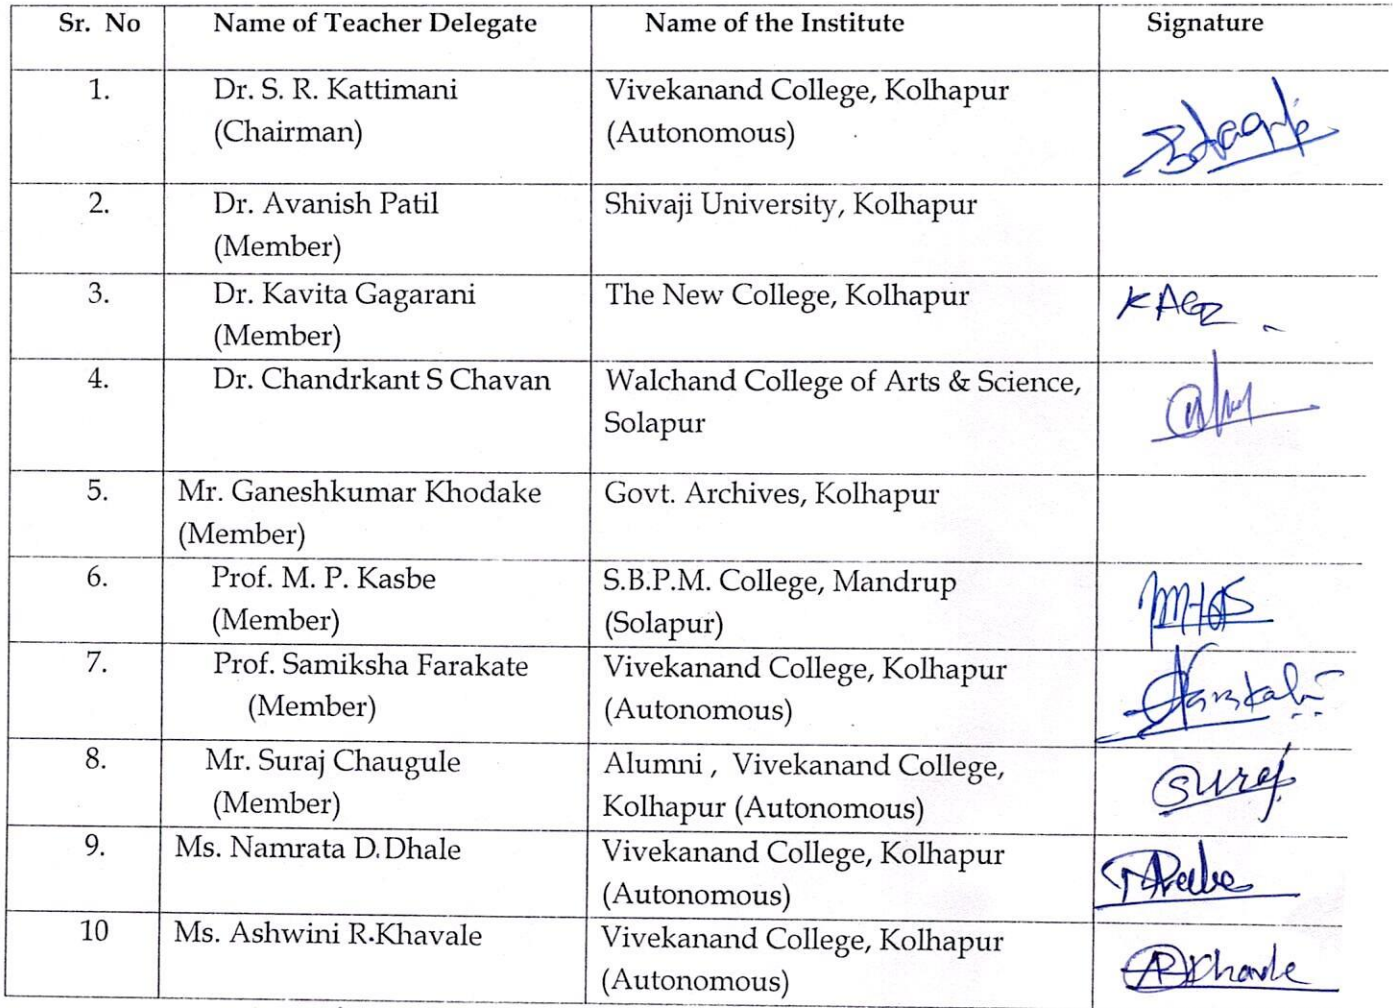 Sr. No Name of Teacher Delegate Name of the Institute Signature
1. Dr. S. R. Kattimani Vivekanand College, Kolhapur
(Chairman) (Autonomous)
2. Dr. Avanish Patil Shivaji University, Kolhapur
(Member)
3. Dr. Kavita Gagarani The New College, Kolhapur
(Member)
4. Dr. Chandrkant S Chavan Walchand College of Arts & Science,
Solapur
5. Mr. Ganeshkumar Khodake Govt. Archives, Kolhapur
(Member)
6. Prof. M. P. Kasbe S.B.P.M. College, Mandrup
(Member) (Solapur)
7. Prof. Samiksha Farakate Vivekanand College, Kolhapur
(Member) (Autonomous)
8. Mr. Suraj Chaugule Alumni , Vivekanand College, Suraj
(Member) Kolhapur (Autonomous)
9. Ms. Namrata D. Dhale Vivekanand College, Kolhapur
(Autonomous)
10 Ms. Ashwini R. Khavale Vivekanand College, Kolhapur
(Autonomous)